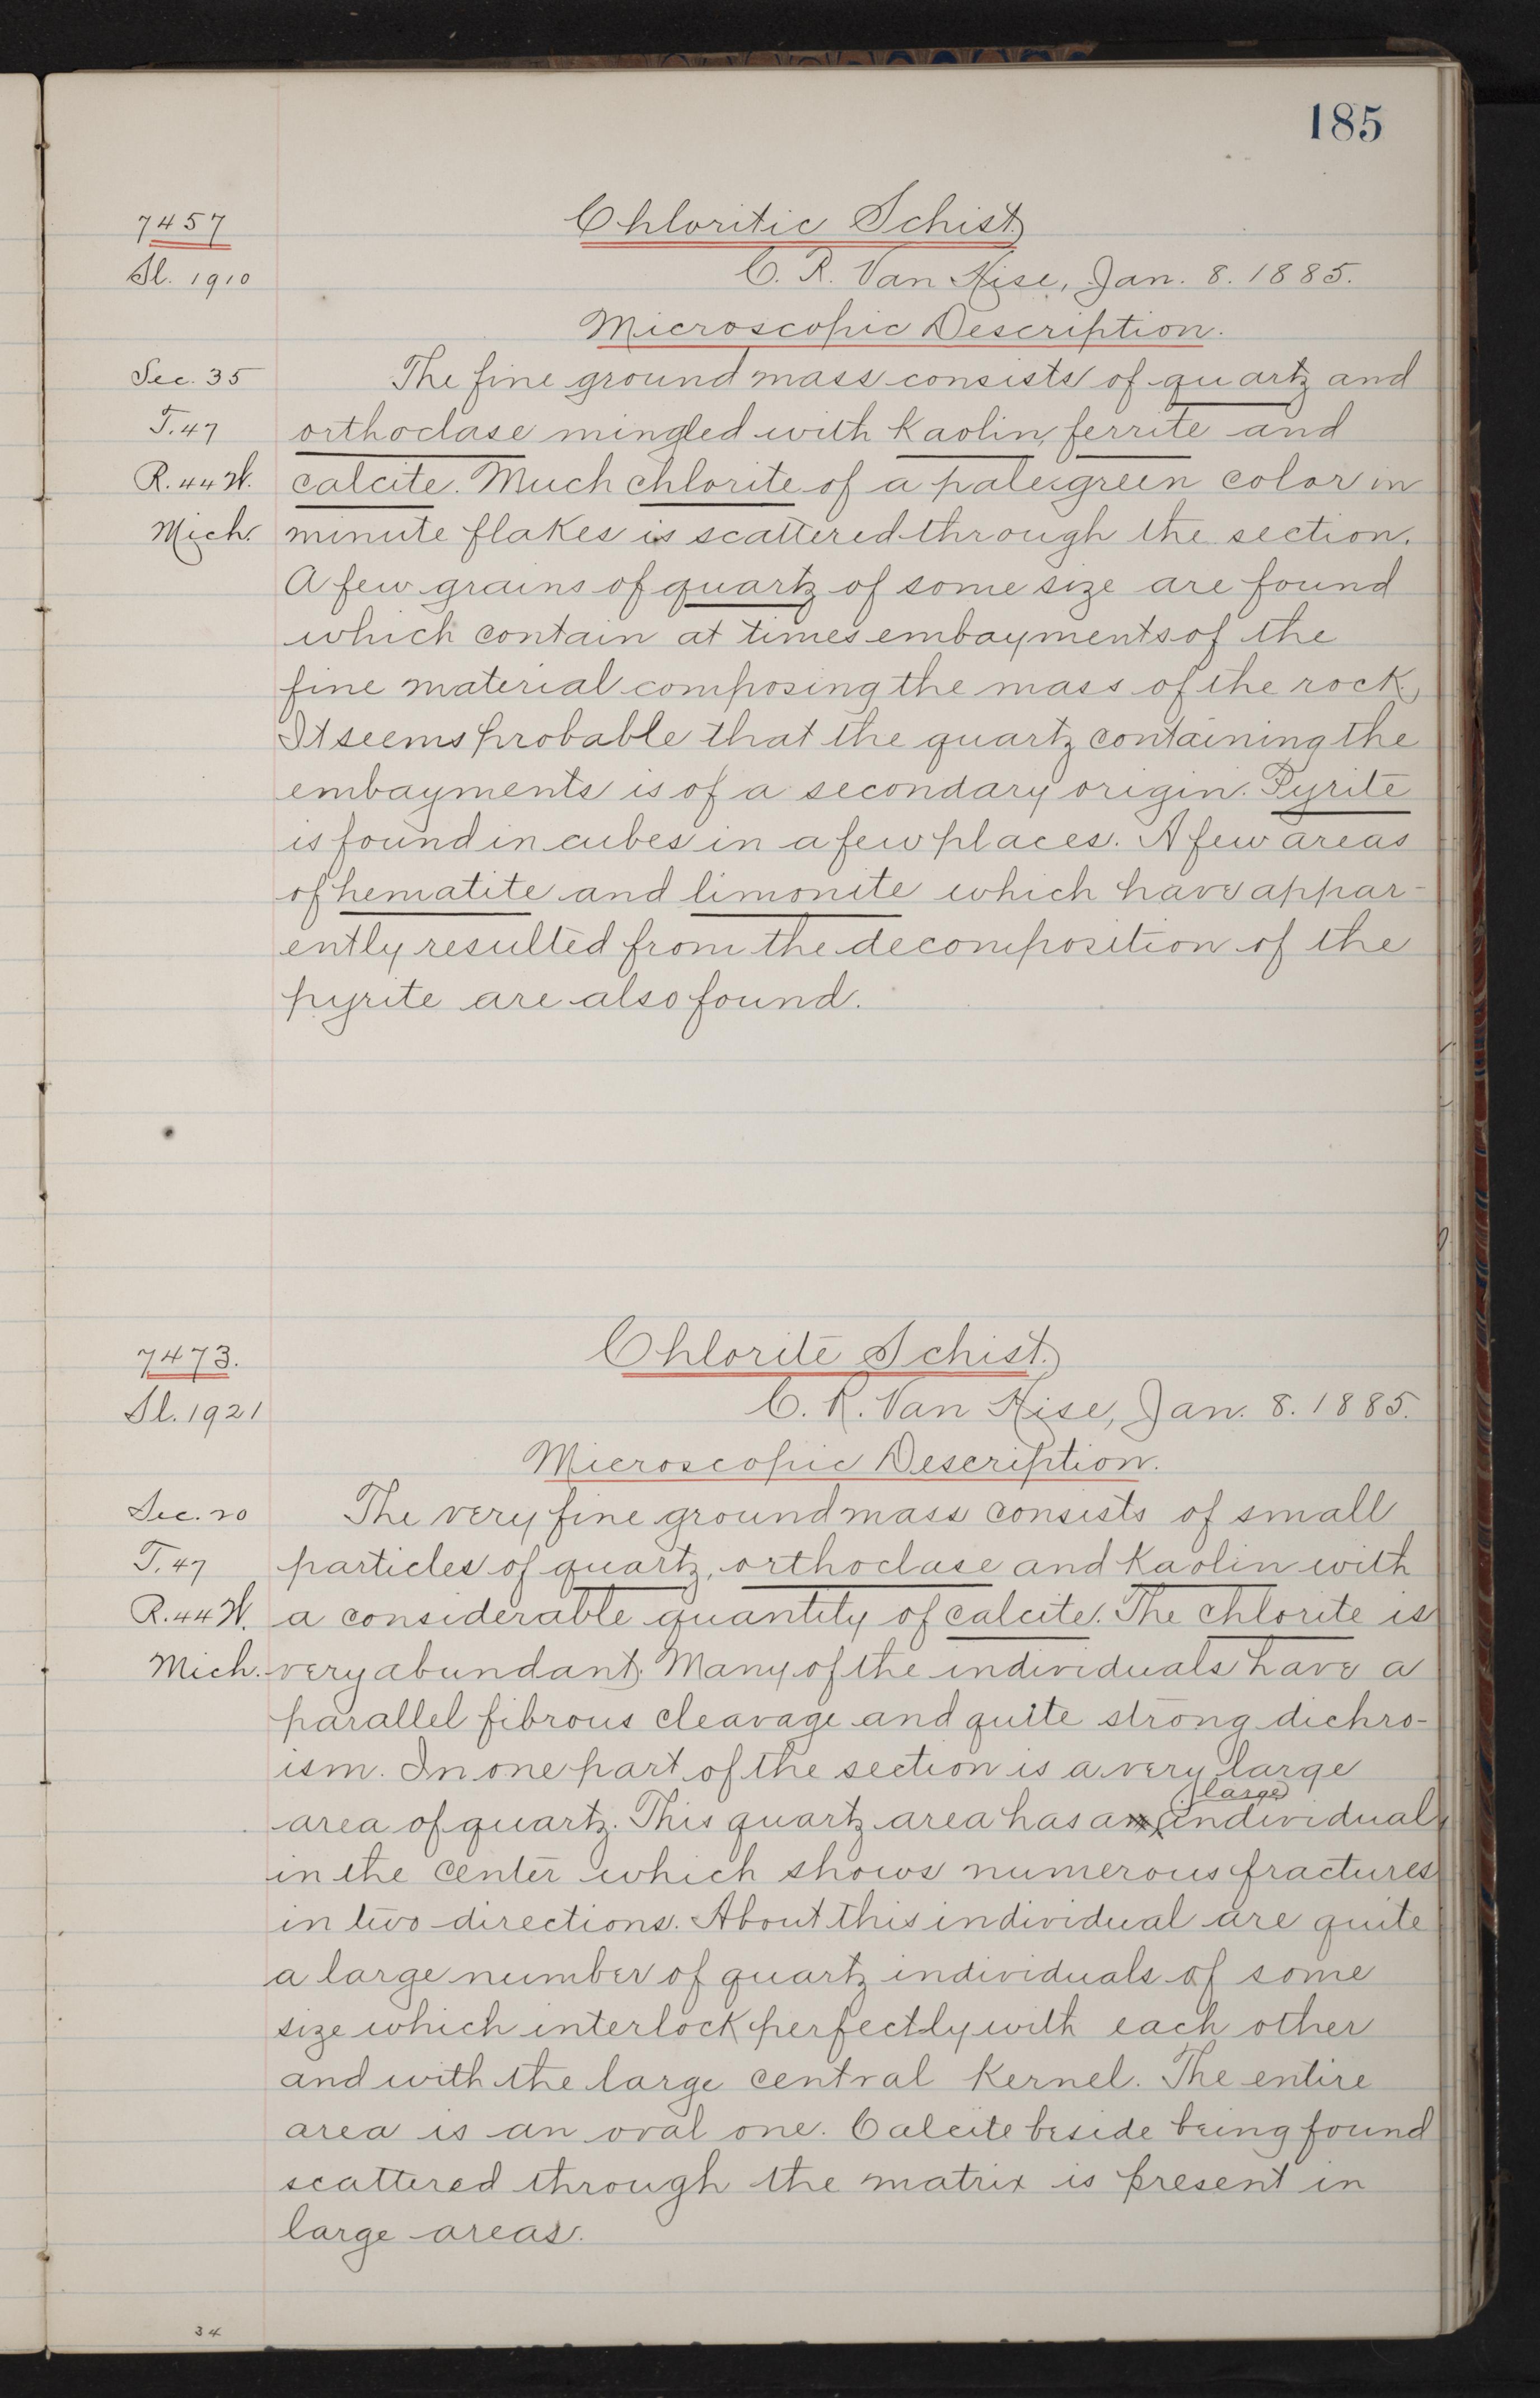 185
7457
Chloritic Schist.
Sl. 1910
C. R. Van Hise, Jan. 8. 1885.
Microscopic Description.
Sec. 35
The fine ground mass consists of quartz and
T. 47
orthoclase mingled with Kaolin, ferrite and
R. 44 W.
calcite. Much chlorite of a pale green color in
Mich.
minute flakes is scattered through the section.
A few grains of quartz of some size are found
which contain at times embayments of the
fine material composing the mass of the rock.
It seems probable that the quartz containing the
embayments is of a secondary origin. Pyrite
is found in cubes in a few places. A few areas
of hematite and limonite which have appar-
ently resulted from the decomposition of the
pyrite are also found.
7473.
Chlorite Schist.
Sl. 1921
C. R. Van Hise, Jan. 8. 1885.
Microscopic Description.
Sec. 20
The very fine groundmass consists of small
T. 47
particles of quartz, orthoclase and Kaolin with
R. 44 W.
a considerable quantity of calcite. The chlorite is
Mich.
very abundant. Many of the individuals have a
parallel fibrous cleavage and quite strong dichro-
ism. In one part of the section is a very large
large
area of quartz. This quartz area has an individual
in the center which shows numerous fractures
in two directions. About this individual are quite
a large number of quartz individuals of some
size which interlock perfectly with each other
and with the large central Kernel. The entire
area is an oval one. Calcite beside being found
scattered through the matrix is present in
large areas.
34